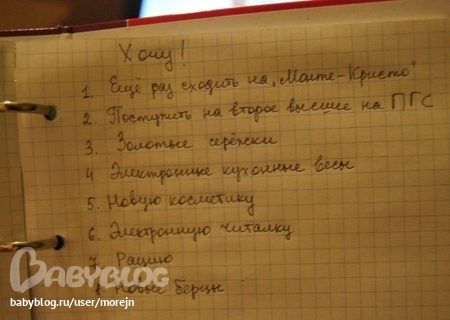 Хочу!
1. Ещё раз сходить на "Монте-Кристо"
2. Поступить на второе высшее на ПГС
3. Золотые серёжки
4 Электронные кухонные весы
5. Новую косметику
6. Электронную читалку
7 Рацию
8. Новые берцы
BABYBLOG
babyblog.ru/user/morejn